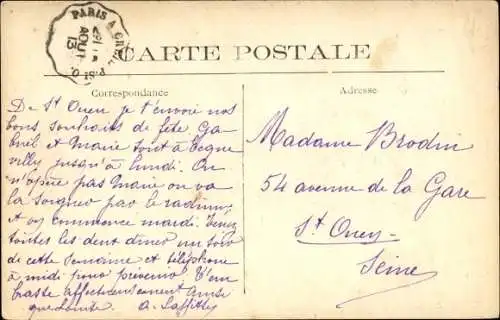 PARIS A CREIL
AOUT
13
CARTE POSTALE
Correspondance
Adresse
De St Ouen je t'envoie nos
bons souhaits de fête. Ga
briel et Marie sont à Regne
villy jusqu'à lundi. On
n'opère pas Marie on va
la soigner par le radium
et on commence mardi. Venez
toutes les deux diner un soir
de cette semaine et téléphone
à midi pour prévenir. T'em
brasse affectueusement ainsi
que Louise. A. Laffitte
Madame Brodin
54 avenue de la Gare
St Ouen
Seine